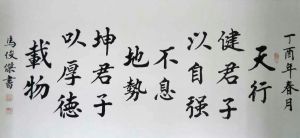 丁酉年春月
天行
健君子
以自强
不息
地勢
坤君子
以厚德
載物
馬俊傑書